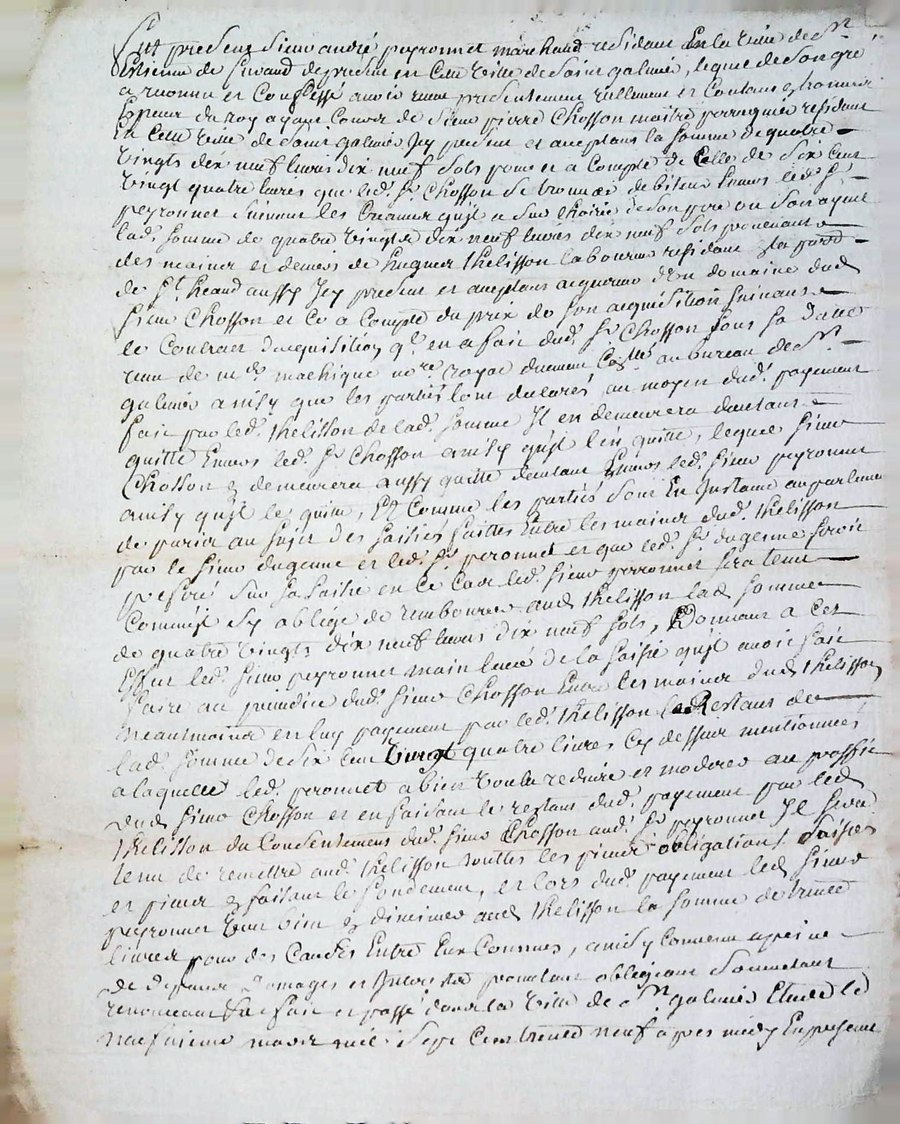 fut present sieur andré peyronnet marchand residant en la ville de St
Estienne de furand de present en cette ville de saint galmier, lequel de son gré
a reconnu et confessé avoir reçu presentement reellement et contant
du roy ayant cours de sieur pierre Chosson maitre perruquier residant
en cette ville de saint galmier Icy present et aceptant la somme de quatre
vingts dix neuf livres dix neuf sols pour et a compte de Celle de six cent
vingt quatre livres que led. sr. Chosson se trouve debiteur Envers led. sr.
peyronnet suivant les Creances quil a sur de son pere ou son ayeul
lad. somme de quatre vingts dix neuf livres dix neuf sols provenant
des mains et deniers de hugues thelisson laboureur residant
de St. heand aussy Icy present et aceptant aquereur d'un domaine dud
sieur Chosson et Ce a Compte du prix de son acquisition suivant
le Contrat d'acquisition q. en a fait dud. sr. Chosson sous sa datte
reçu de me. mathique nore. royal duement au bureau de St.
galmier ainsy que les parties lont declaré, au moyen dud. payement
fait par led. thelisson de lad. somme Il en demeurera dautant
quitte Envers led. sr. Chosson ainsy quil len quitte, lequel sieur
Chosson demeurera aussy quitte dautant Envers led. sieur peyronnet
ainsy quil le quitte, Et Comme les parties sont En Instance au parlement
de paris au sujet des saisies faittes Entre les mains dud. thelisson
par le sieur dugenne et led. sr. peronnet et que led. sr. dugenne seroit
preferé sur sa saisie en ce Cas led. sieur peyronnet sera tenu
Comme sy oblige de rembourser aud thelisson lad somme
de quatre vingts dix neuf livres dix neuf sols, Donnant a cet
Effet led. sieur peyronnet main levée de la saisie quil avoit fait
faire au prejudice dud. sieur Chosson Entre les mains dud thelisson
neantmoins en luy payement par led. thelisson le Restant de
lad. somme de six cent vingt quatre livres Cy dessus mentionnée
a laquelle led. peronnet a bien voulu reduire et moderer au proffit
dud sieur Chosson et en faisant le restant dud. payement par led
thelisson du Consentement dud. sieur Chosson aud. sr. peyronnet Il sera
tenu de remettre aud. thelisson touttes les pieces obligations saisies
et pieces faisant le fondement, et lors dud. payement led sieur
peyronnet aud thelisson la somme de trente
livres pour des Causes Entre Eux Connues, ainsy Convenu a peine
de depens Domages et Interets pourtant obligeant soumetant
renonceant fait et passé dans la ville de St galmier Etude le
neufvieme mars mil sept Cent trente neuf apres midy En presence